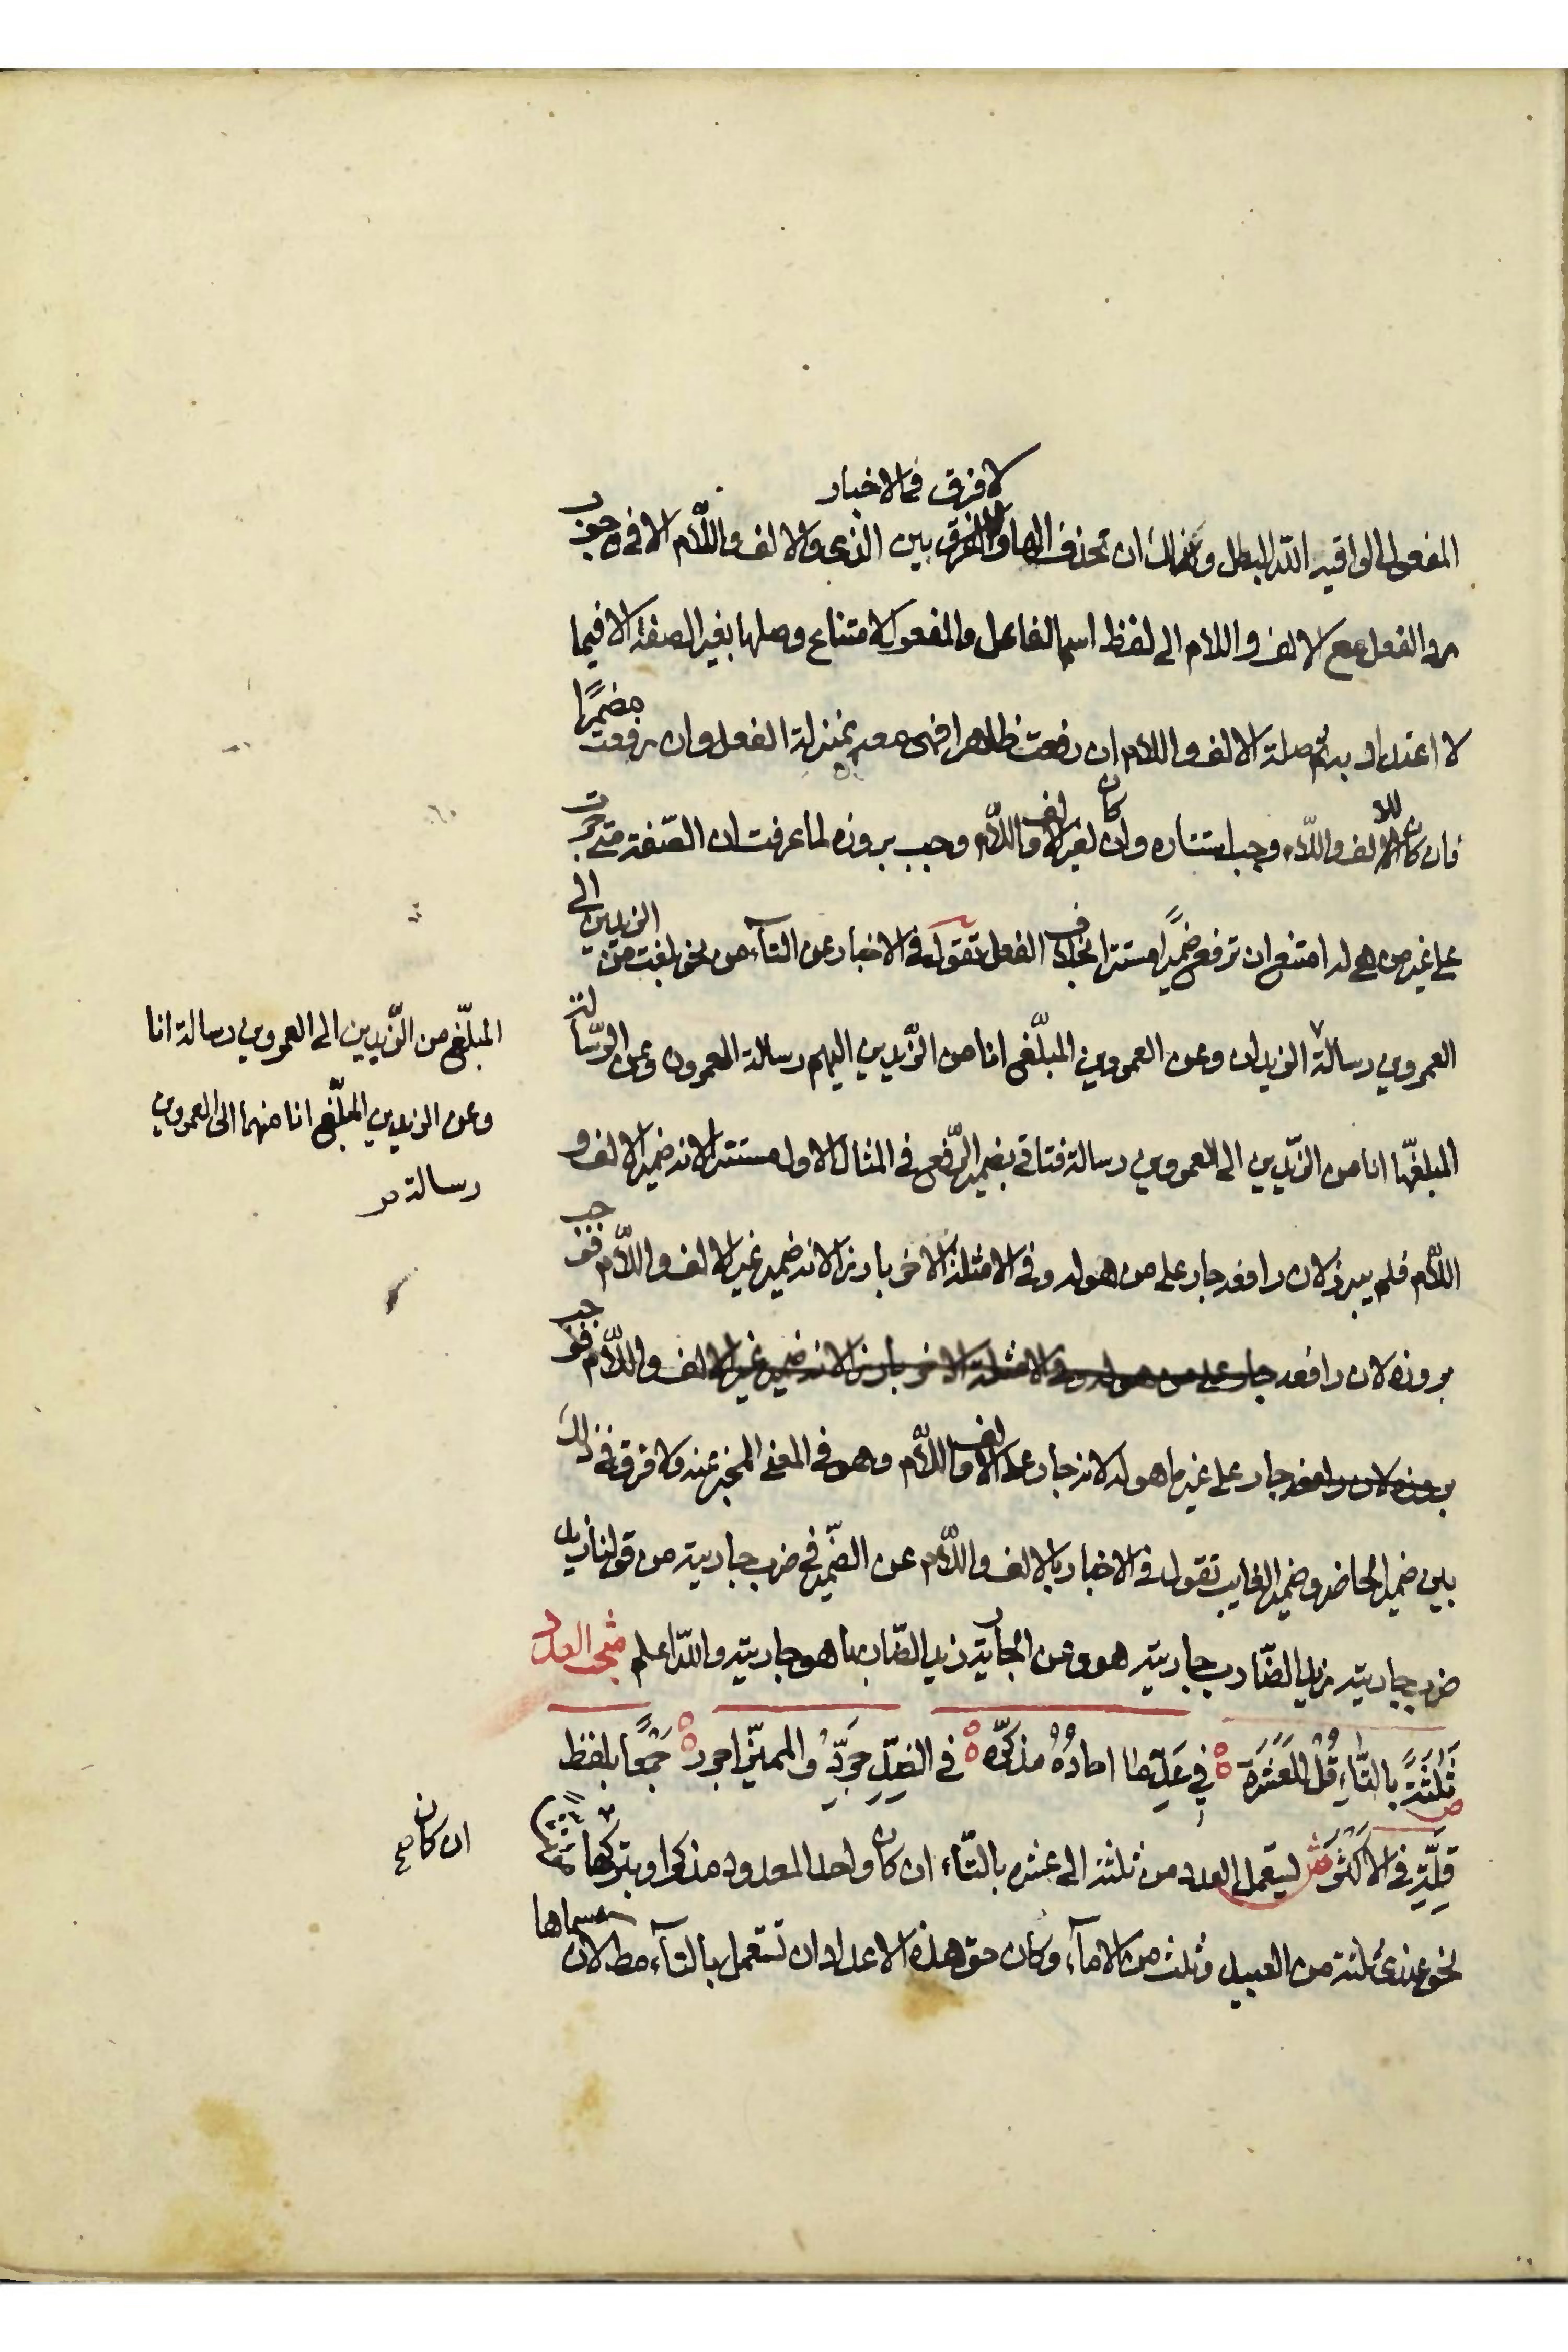 لا فرق في الاخبار
المفعول الواقيه الله البطل ولك ان تحذف الها ولا فرق بين الذي والالف واللام الا في وجوب
رد الفعل مع الالف واللام الى لفظ اسم الفاعل والمفعول لامتناع وصلها بغير الصفة الا فيما
لا اعتداد به ثم صلة الالف واللام ان رفعت ظاهرا فهي معه بمنزلة الفعل وان رفعت مضمرًا
فان كان للالف واللام وجب استتاره وان كان لغير الالف واللام وجب بروزه لما عرفت ان الصّفة متى جرت
على غير من هي له امتنع ان ترفع ضميرًا مستترا بخلاف الفعل تقول في الاخبار عن التآء من نحو بلغت من الزيدين الى
العمروين رسالة الزيدان وعن العمروين المبلّغ انا من الزّيدين اليهم رسالة العمرون وعن الرّسالة
المبلغّها انا من الزّيدين الى العمروين رسالة فتاتي بضمير الرّفع في المثال الاول مستترا لانه ضمير الالف و
اللّام فلم يبرز لان رافعه جار على من هو له وفي الامثلة الاخر بارزا لانه ضمير غير الالف واللّام فوجب
بروزه لان رافعه جار على من هو له وفي الامثلة الاخر بارزا لانه ضمير غير الالف واللّام فوجب
بروزه لان رافعه جار على غير ما هو له لانه جار على الالف واللّام وهو في المعنى المخبر عنه ولا فرق في ذلك
بين ضمير الحاضر وضمير الغايب تقول في الاخبار بالالف واللّام عن الضّمير في ضرب جاريته من قولنا زيد
ضرب جاريته زيد الضّارب جاريته هو وعن الجارية زيد الضّاربها هو جاريته والله اعلم العدد
ثَلٰثَةً بالتَّاءِ قُلْ لِلعَشَرَة في عَدِّ ما احادُهُ مذكّره في الضِدِّ جَرِّدْ والمميّز اجرر جَمْعًا بلفظ
قِلَّةٍ في الاَكْثَر ش يستعمل العدد من ثلثة الى عشره بالتّاء ان كان واحد المعدود مذكرا وبتركها
نحو عندى ثلثة من العبيد وثلث من الامآء وكان حق هذه الاعداد ان تستعمل بالتآء مط لان مسماها
المبلّغ من الزّيدين الى العمروين رسالة انا
وعن الزيدين المبلّغ انا منهما الى العمروين
رسالة
ان كان